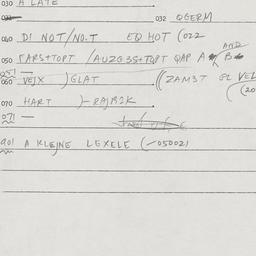 030 A LATE
032 QGERM
040 DI NOT/NO.T EQ HOT (022
050 TARS+TOPT /AUZG3S+TOPT QAP A AND B
051 —
060 VEJX )GLAT ((ZAMST GL VEL
(20
070 HART )-RAJB2K
071 —
901 A KLEJNE LEXELE (-05002)